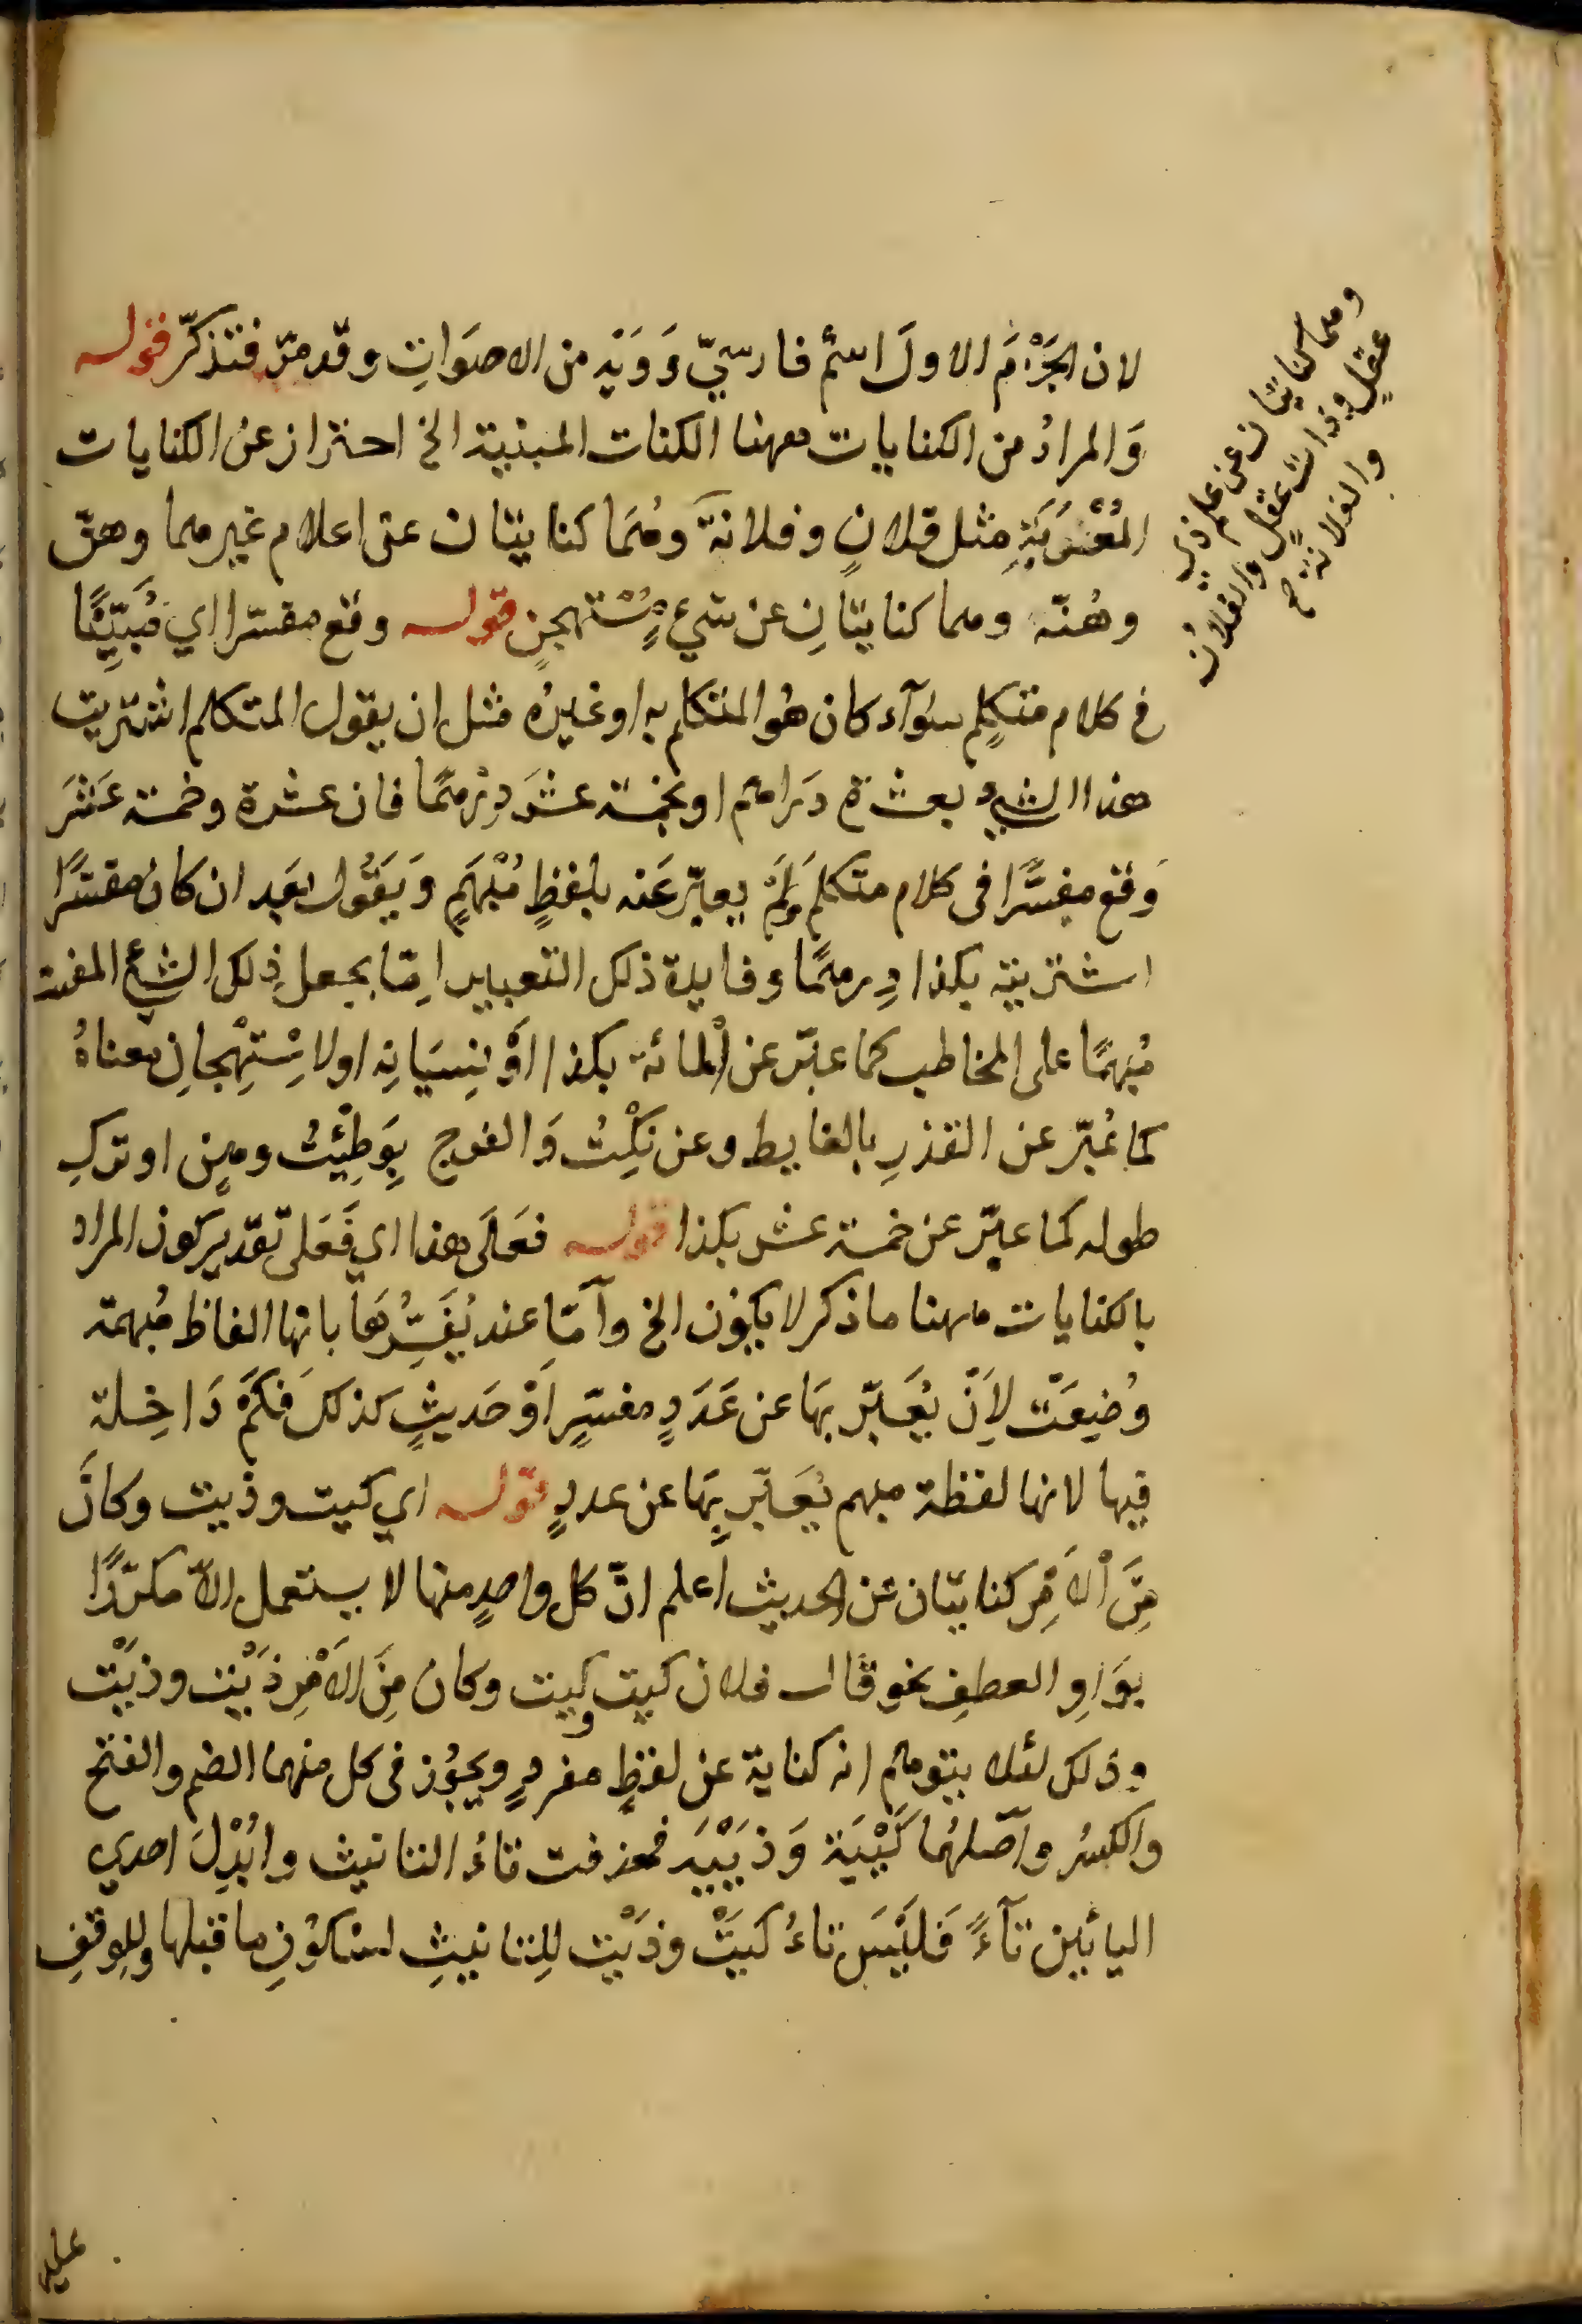 لان الجَزْءَ الاولَ اسْم فارسيّ وَوَيْهِ من الاصوَاتِ وقد مرّ فتذكرّ قوله
وَالمرادُ من الكنايات ههنا الكنات المبنية الخ احتراز عن الكنايات
المُعْرَبَةِ مثل فلانٍ وفلانةَ وهُمَا كنايتان عن اعلام غيرهما وهنّ
وهُنّه وهما كنايتَانِ عن شيءٍ مُسْتهجنٍ قوله وقع مفسّرا اي مُبَيِّنًا
في كلام متكلِمٍ سوآء كان هُو المتكلم به او غيرُه مثل ان يقول المتكلم اشتريت
هذا الشيء بعشرة دَراهم او بخمسة عشَر دِرْهمًا فان عشرة وخمسة عَشَرَ
وَقع مفسَّرًا في كلام متكلمٍ ولَمْ يعبّر عَنه بلفظٍ مُبْهَمٍ وَيَقُول بعَد ان كان مفسّرًا
اشتريته بكذا دِرهمًا وفايدة ذلك التعبير امّا بجعل ذلك الشئ المفسّر
مُبهمًا على المخاطب كما عبّر عن المائة بكذا اوْ نِسيَانِه اولاِسْتِهْجانِ معناهُ
كما عُبّر عن القذرِ بالغايط وعن نكْتُ وَالفرج بِوَطِئْتُ وهنٍ او تركِ
طوله كما عبّر عن خمسة عشر بكذا قوله فعَلَى هذا اي فَعَلى تقديرِ كون المراد
بالكنايات ههنا ما ذكر لا يكون الخ وَآمّا عند يُفَسِّرُهَا بانها الفاظ مُبهمة
وُضِيعَتْ لِاَنْ يُعَبّر بهَا عن عَدَدٍ مفسّرٍ اَوْ حَديثٍ كذلكَ فكَمْ دَاخِلة
فيها لانها لفظة مبهم يُعَبّر بِهَا عن عددٍ قوله اي كيت وذيت وكانَ
مِنَ اْلاَمْرِ كنايتان عن الحديث اعلم انّ كل واحدٍ منها لا يستعمل الاّ مكرّرًا
بوَاوِ العطفِ نحو قال فلان كيت وكيت وكان مِنَ الاَمْرِ ذَيْتَ وذيْت
وذلك لئلا يتوهم انه كناية عن لفظٍ مفردٍ ويجوُز في كل منهما الضم والفتح
والكسُر واصّلهُما كَيْيَة وَذَيْيَه فحذفت تاءُ التانيث وابُدْلَ احدي
اليائين تآءً فَليْسَ تاءُ كَيتْ وذَيْت لِلتانيثِ لسَكوْنِ ما قبلها ولِلوقفِ
وهما كنايتان عن علم ذي
عقلٍ وذات عقلٍ والفلان
والفلانة صح
عليه